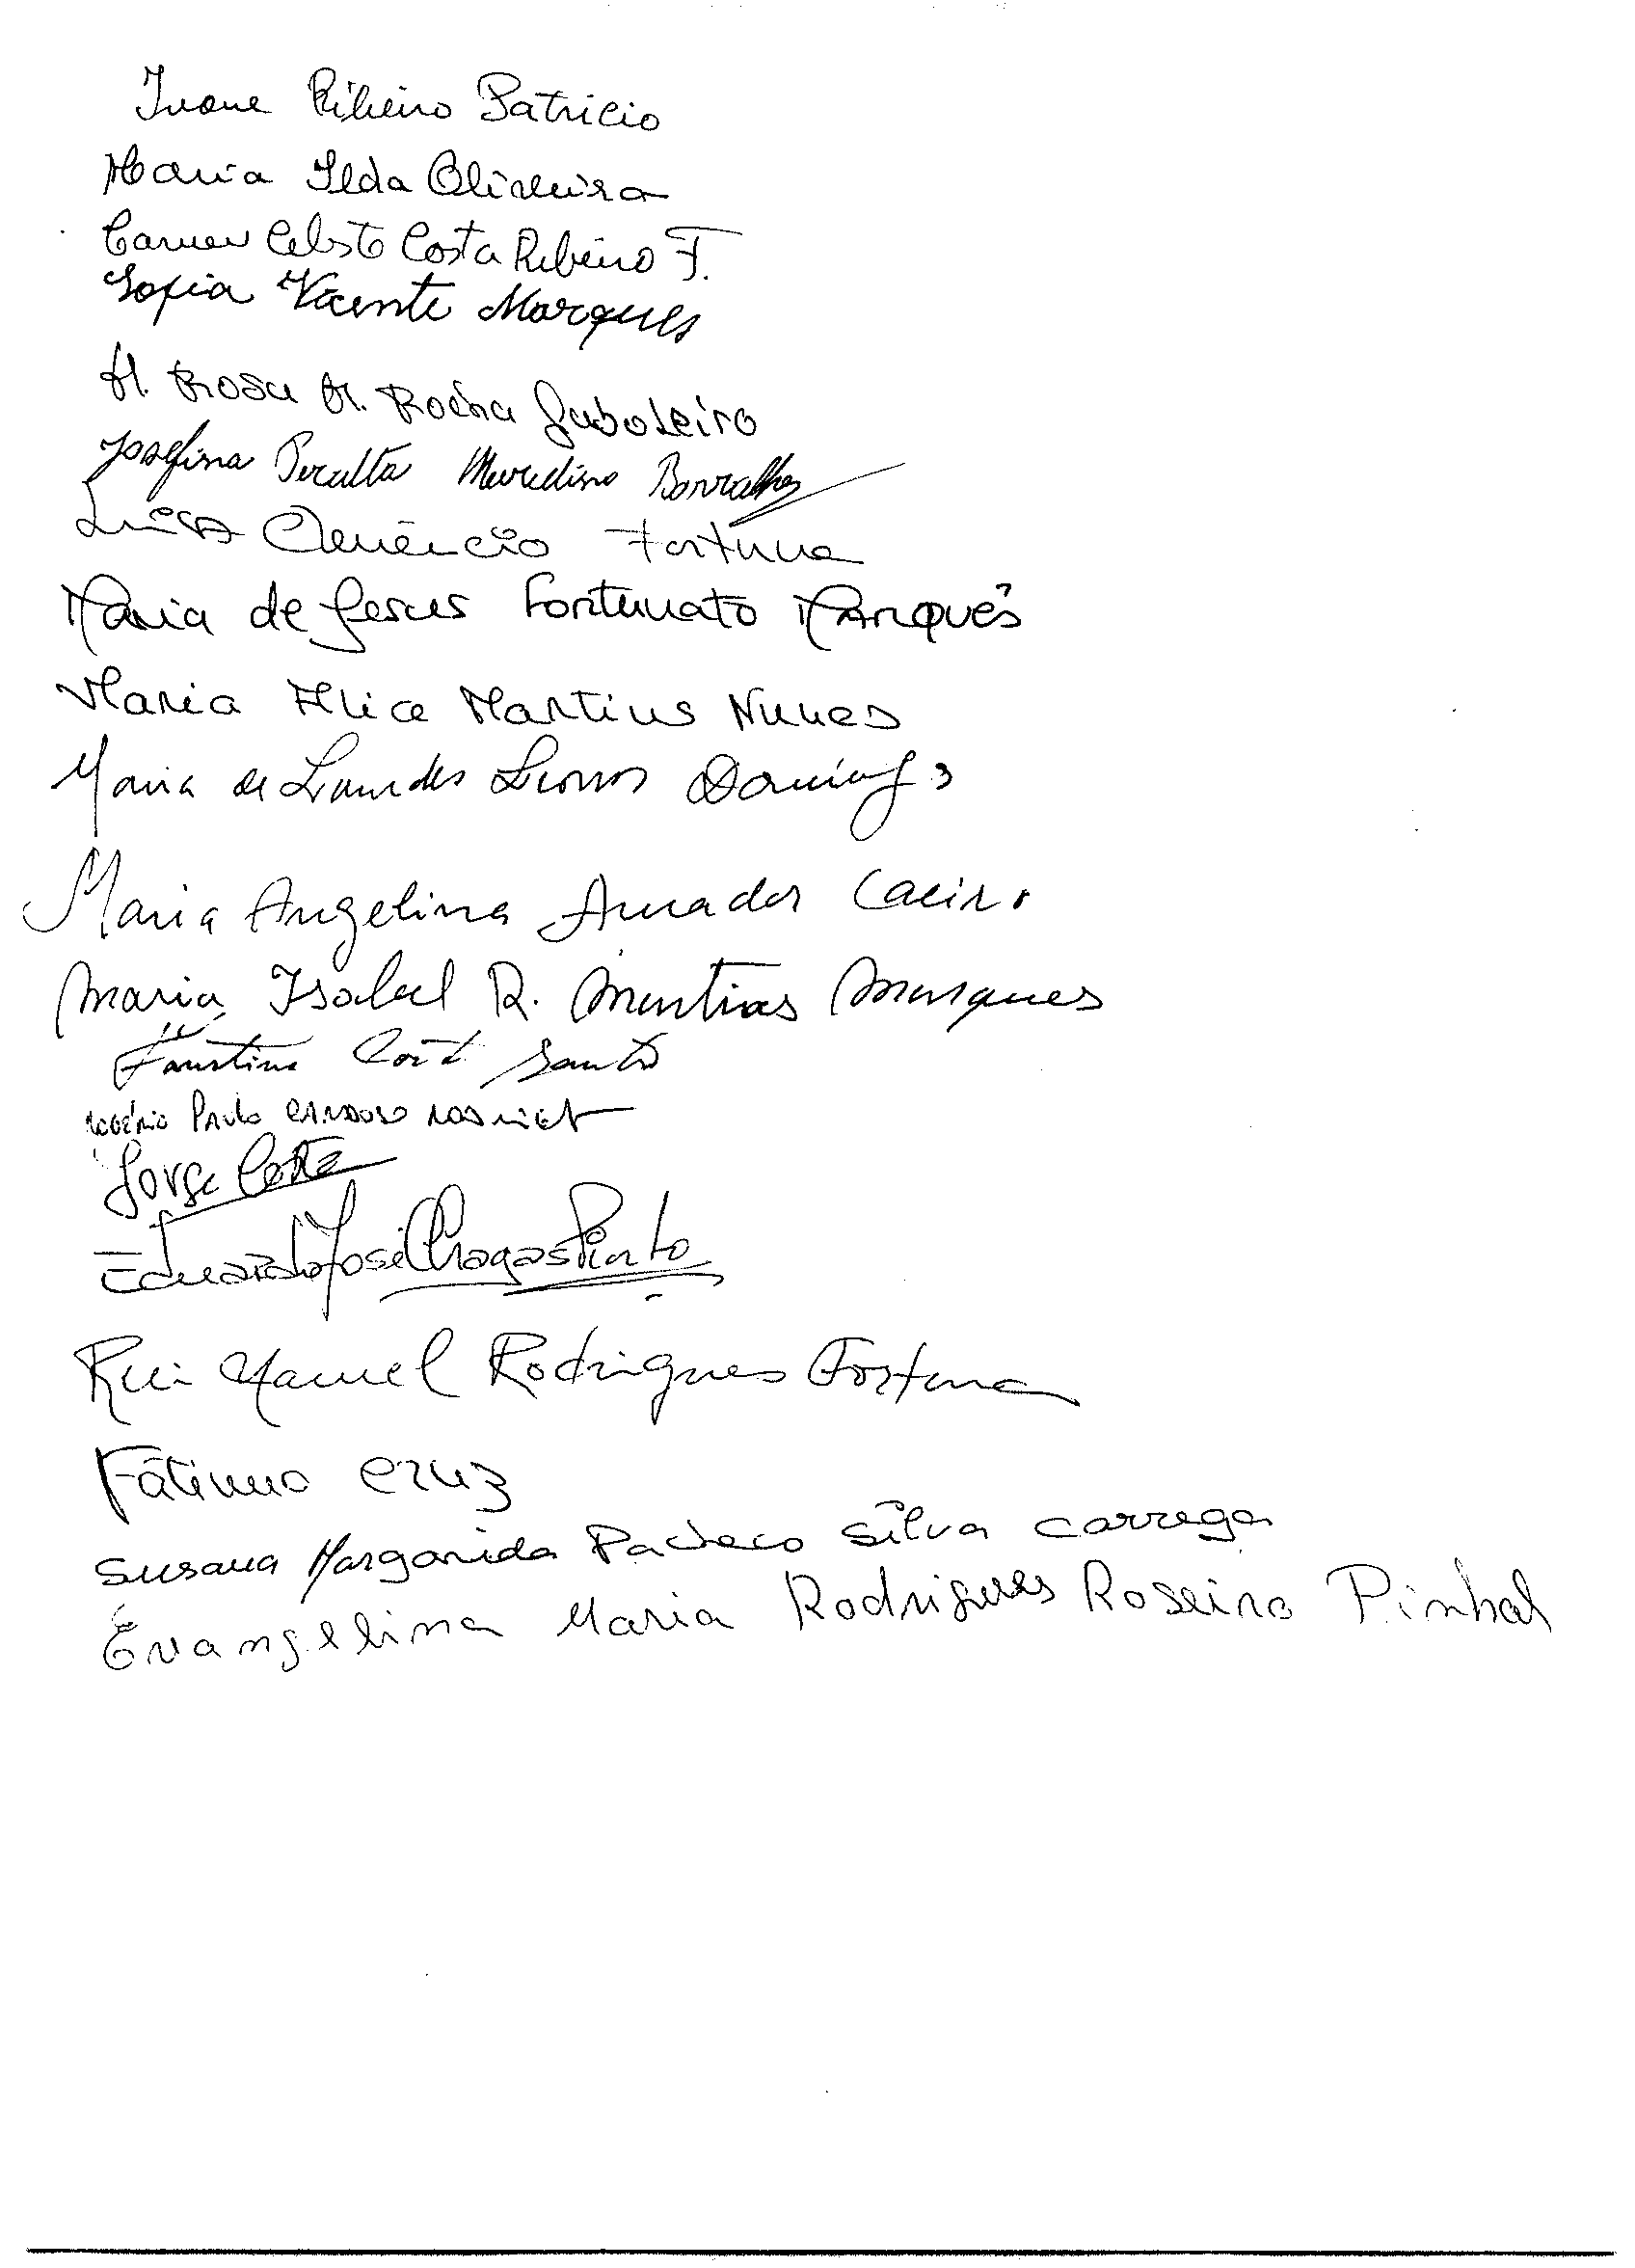 Ivone Ribeiro Patricio
Maria Ilda Oliveira
Carmen Celeste Costa Ribeiro F.
Sofia Vicente Marques
M. Rosa M. Rocha
Josefina Peralta Borralho
Luisa Fortuna
Maria de Jesus Fortunato Marquês
Maria Alice Martins Nunes
Maria de Lourdes Domingos
Maria Angelina Amador Caeiro
Maria Isabel R. Martins Marques
Faustino Santos
Rogério Paulo Cardoso
Jorge Costa
Eduardo José Chagas Pinto
Rui Manuel Rodrigues Fortuna
Fátima Cruz
Susana Margarida Pacheco Silva Carrega
Evangelina Maria Rodrigues Roseiro Pinhal